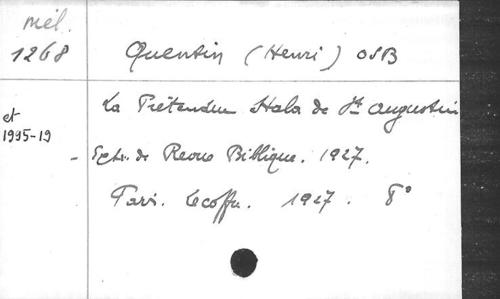 mél.
1268
Quentin (Henri) OSB
La Prétendue Itala de St Augustin
et
1995-19
- Extr. de Revue Biblique. 1927.
Paris. Lecoffre. 1927. 8°